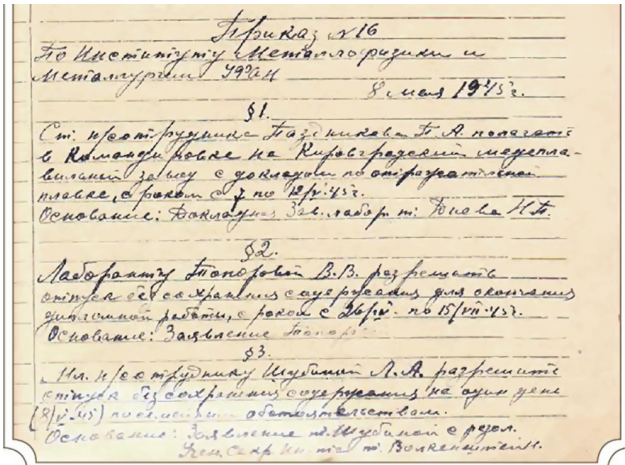 Приказ №16
По Институту Металлофизики и
Металлургии УФАН
8 мая 1945 г.
§1.
Ст. н/сотрудника Паздникова П.А. полагать
в командировке на Кировградский медепла-
вильный завод с докладом по отражательной
плавке, сроком с 7 по 12/V-45 г.
Основание: Докладная Зав. лабор. т.
§2.
Лаборантку Топоровой В.В. разрешить
отпуск без сохранения содержания для окончания
дипломной работы, сроком с 26/IV- по 15/VII-45 г.
Основание: Заявление
§3.
Мл. н/сотруднику Шубиной Л.А. разрешить
отпуск без сохранения содержания на один день
(8/V-45) по семейным обстоятельствам.
Основание: Заявление т. Шубиной с резол.
Учен. секр. Ин-та т. Волкенштейн.